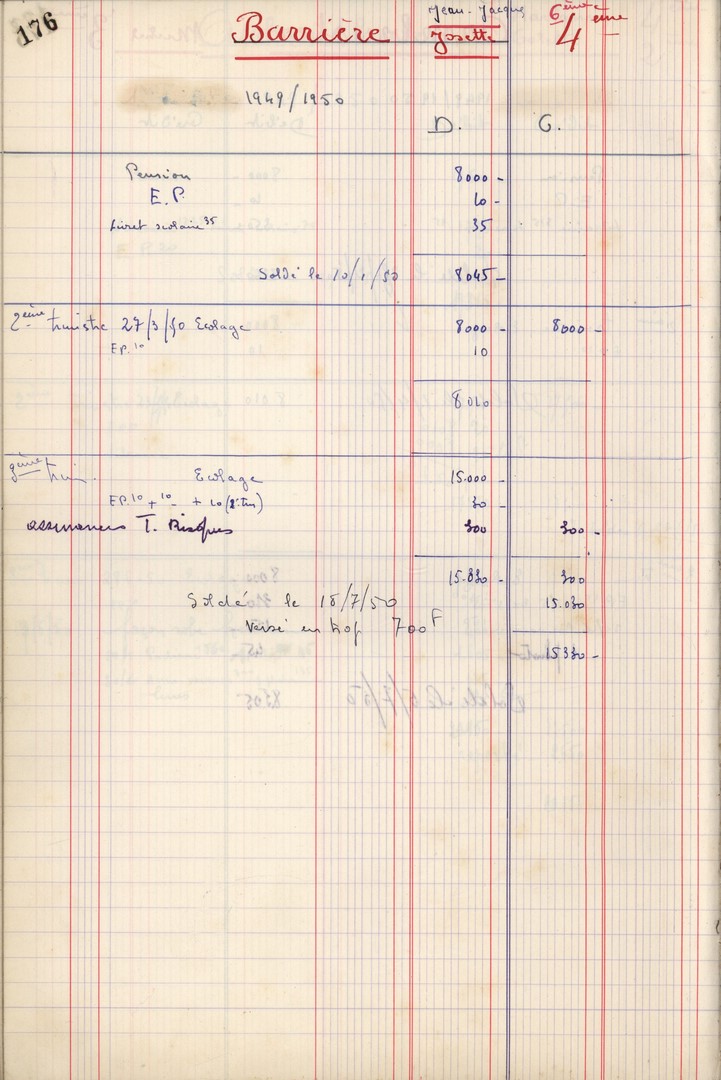 176
Barrière Jean-Jacques 6ème
Josette 4ème
1949/1950
D. C.
Pension 8000 -
E.P. 10 -
Livret scolaire 35 35
Soldé le 10/1/50 8045 -
2ème trimestre 27/3/50 Ecolage 8000 - 8000 -
EP. 10 10
8010
3ème trim. Ecolage 15.000 -
EP. 10 + 10 + 10 30 -
assurances T. Risques 300 300 -
15.330 - 300
Soldé le 18/7/50 15.030
Versé en trop 700 F
15330 -